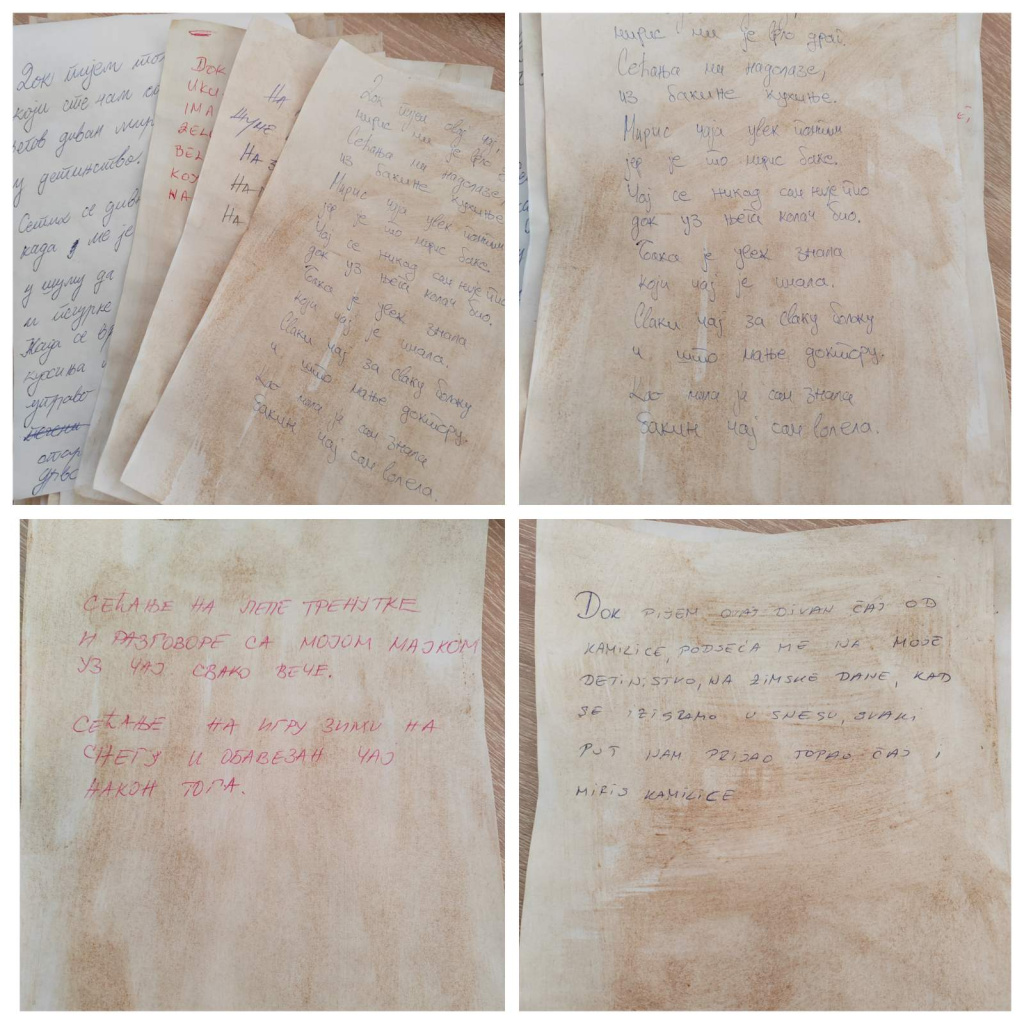 Док пијем
који сте нам
диван
у детинство.
Сетих се
када ме је
у шуму да
и
Када се
кухиња
управо
ДОК
UKU
IMA
ŽEL
BEL
KOJ
NA
НА
НА
НА
НА
Док овај чај,
мирис ми је
Сећања ми надолазе,
из бакине кухиње
Мирис чаја увек памтим
јер је то мирис баке.
Чај се никад сам није пио
док уз њега колач био.
Бака је увек знала
који чај је имала.
Сваки чај за сваку бољку
и што мање доктору.
Као мала ја сам знала
Бакин чај сам волела.
мирис ми је драг.
Сећања ми надолазе,
из бакине кухиње.
Мирис чаја увек памтим
јер је то мирис баке.
Чај се никад сам није пио
док уз њега колач био.
Бака је увек знала
који чај је имала.
Сваки чај за сваку бољку
и што мање доктору.
Као мала ја сам знала
Бакин чај сам волела.
СЕЋАЊЕ НА ЛЕПЕ ТРЕНУТКЕ
И РАЗГОВОРЕ СА МОЈОМ МАЈКОМ
УЗ ЧАЈ СВАКО ВЕЧЕ.
СЕЋАЊЕ НА ИГРУ ЗИМИ НА
СНЕГУ И ОБАВЕЗАН ЧАЈ
НАКОН ТОГА.
DOK PIJEM OVAJ DIVAN ČAJ OD
KAMILICE, PODSJEĆA ME NA MOJE
DETINJSTKO, NA ZIMSKE DANE, KAD
SE IZIGRAMO U SNEGU, SVAKI
PUT NAM PRIJAO TOPAO ČAJ I
MIRIS KAMILICE